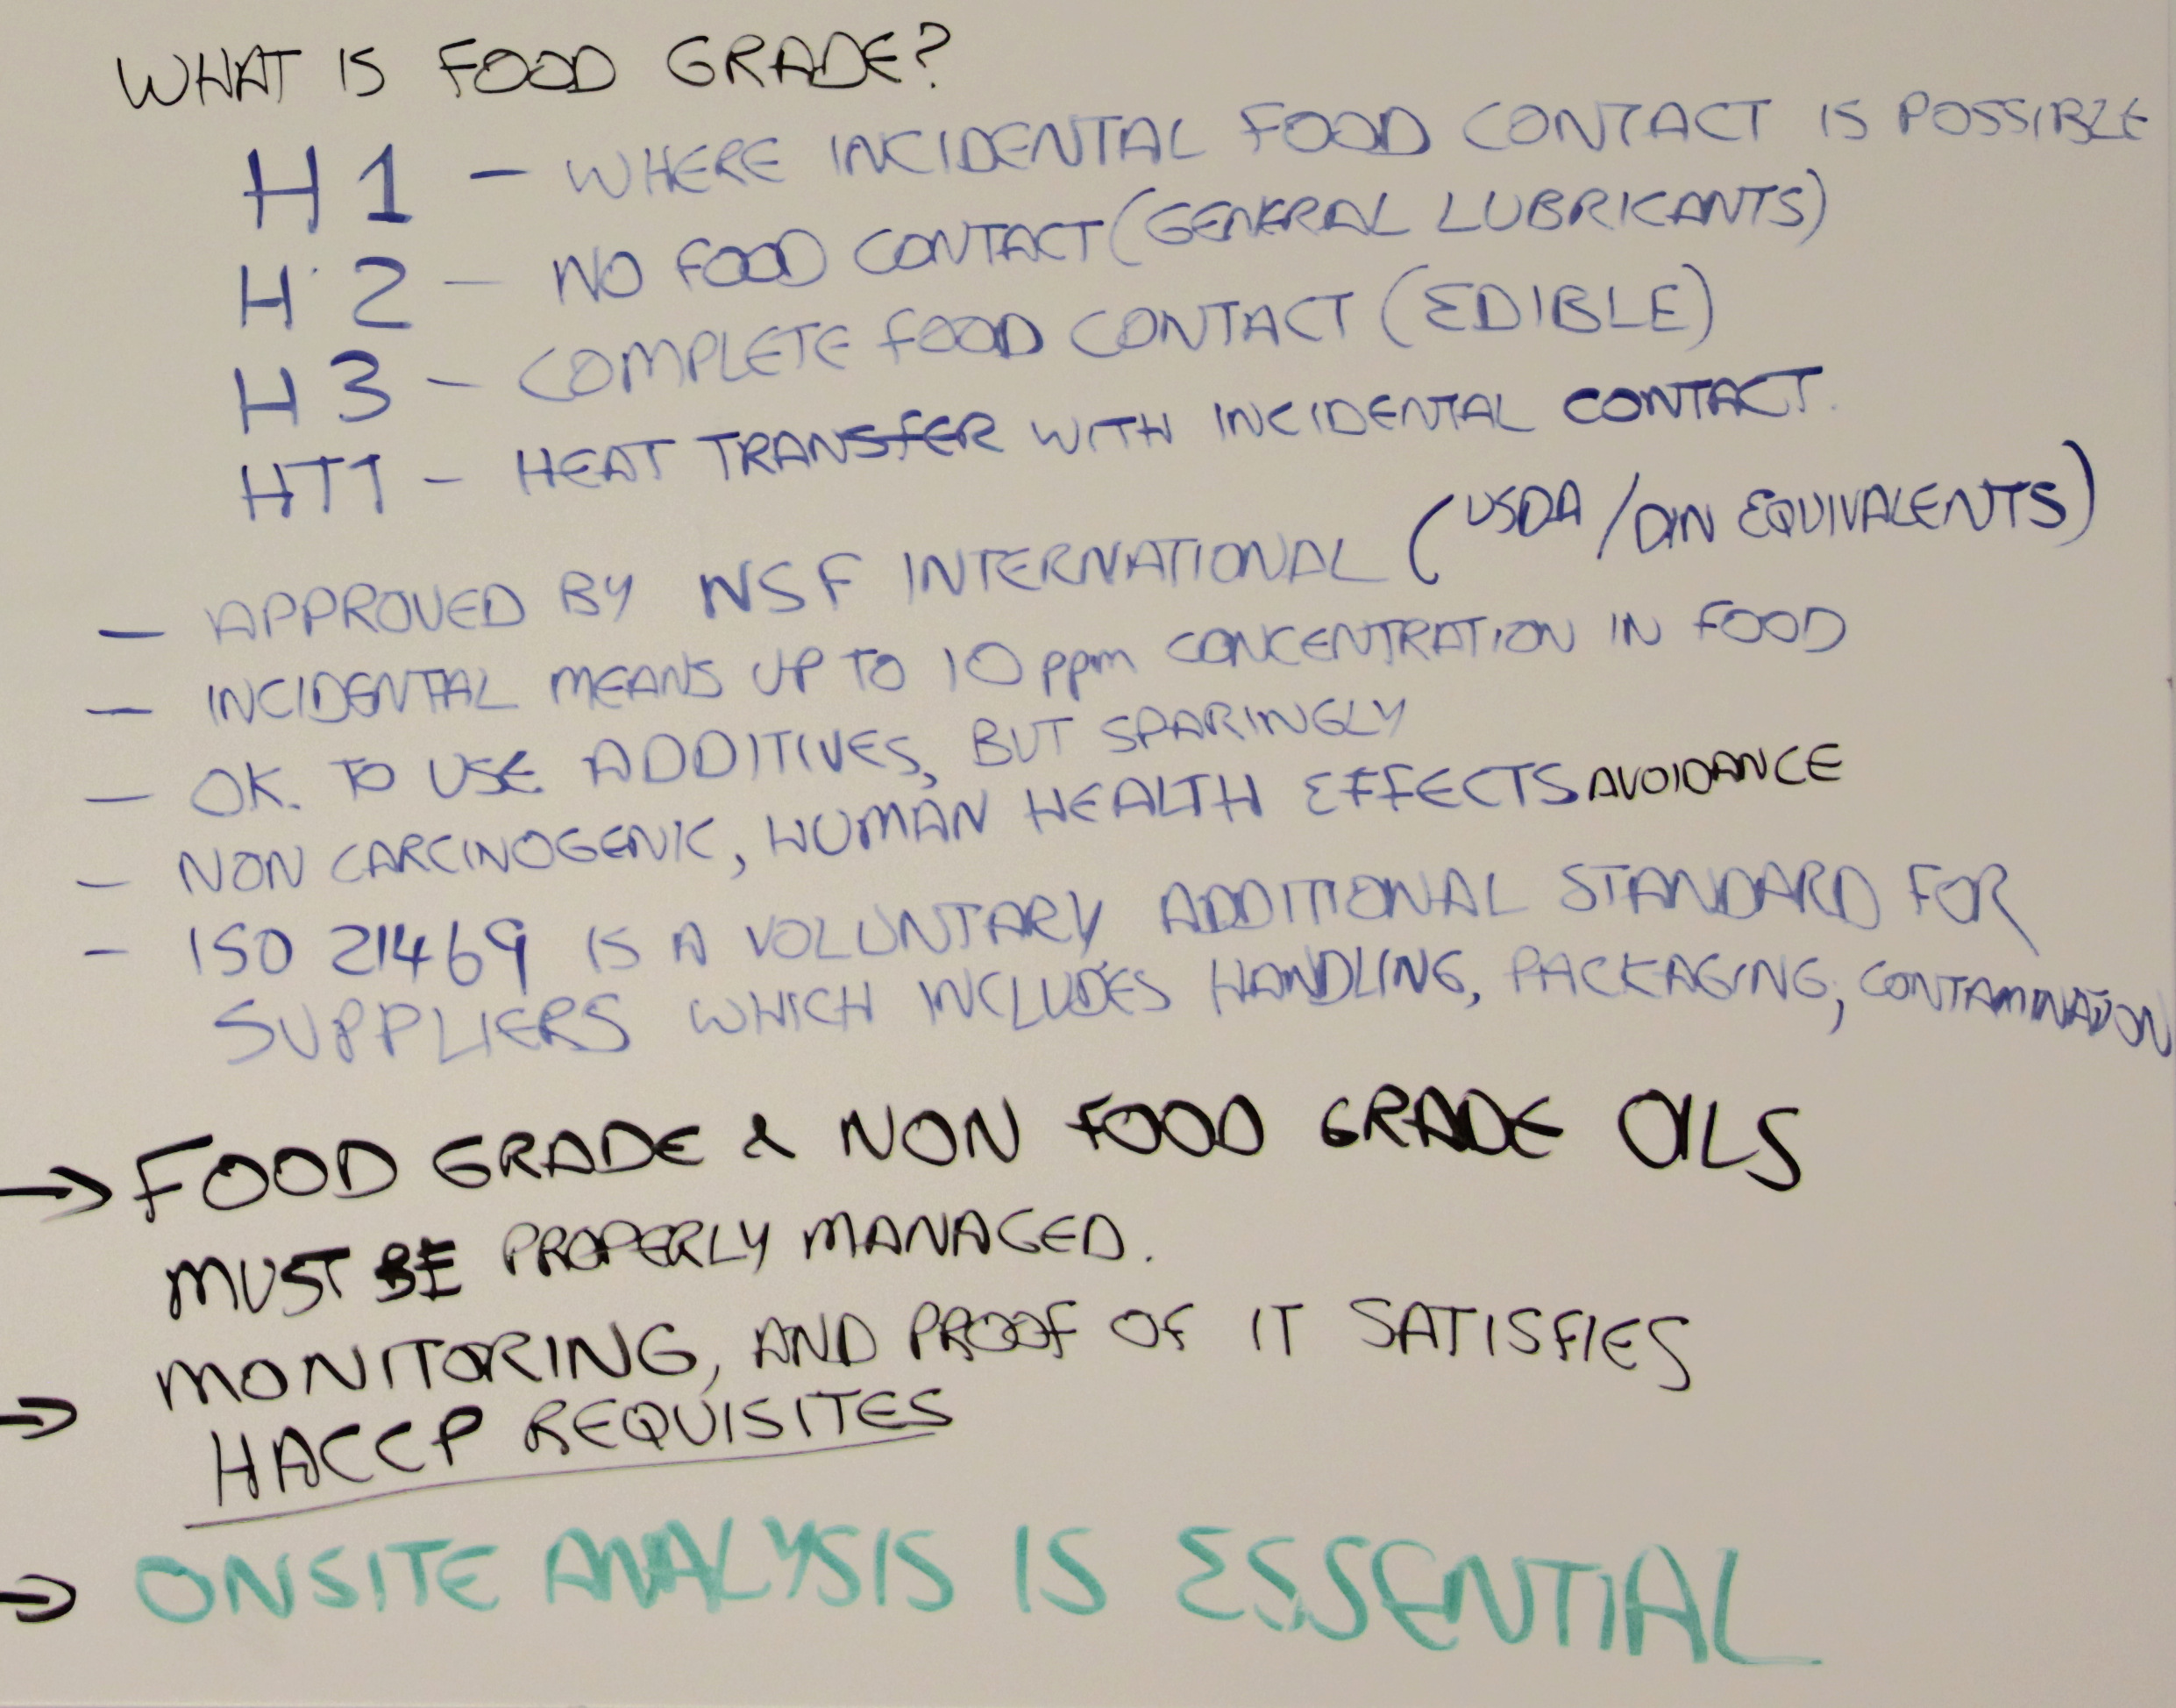 WHAT IS FOOD GRADE?
H1 - WHERE INCIDENTAL FOOD CONTACT IS POSSIBLE
H2 - NO FOOD CONTACT (GENERAL LUBRICANTS)
H3 - COMPLETE FOOD CONTACT (EDIBLE)
HT1 - HEAT TRANSFER WITH INCIDENTAL CONTACT.
- APPROVED BY NSF INTERNATIONAL (USDA/DIN EQUIVALENTS)
- INCIDENTAL MEANS UP TO 10 ppm CONCENTRATION IN FOOD
- OK. TO USE ADDITIVES, BUT SPARINGLY
- NON CARCINOGENIC, HUMAN HEALTH EFFECTS AVOIDANCE
- ISO 21469 IS A VOLUNTARY ADDITIONAL STANDARD FOR
SUPPLIERS WHICH INCLUDES HANDLING, PACKAGING, CONTAMINATION
→ FOOD GRADE & NON FOOD GRADE OILS
MUST BE PROPERLY MANAGED.
→ MONITORING, AND PROOF OF IT SATISFIES
HACCP REQUISITES
→ ONSITE ANALYSIS IS ESSENTIAL